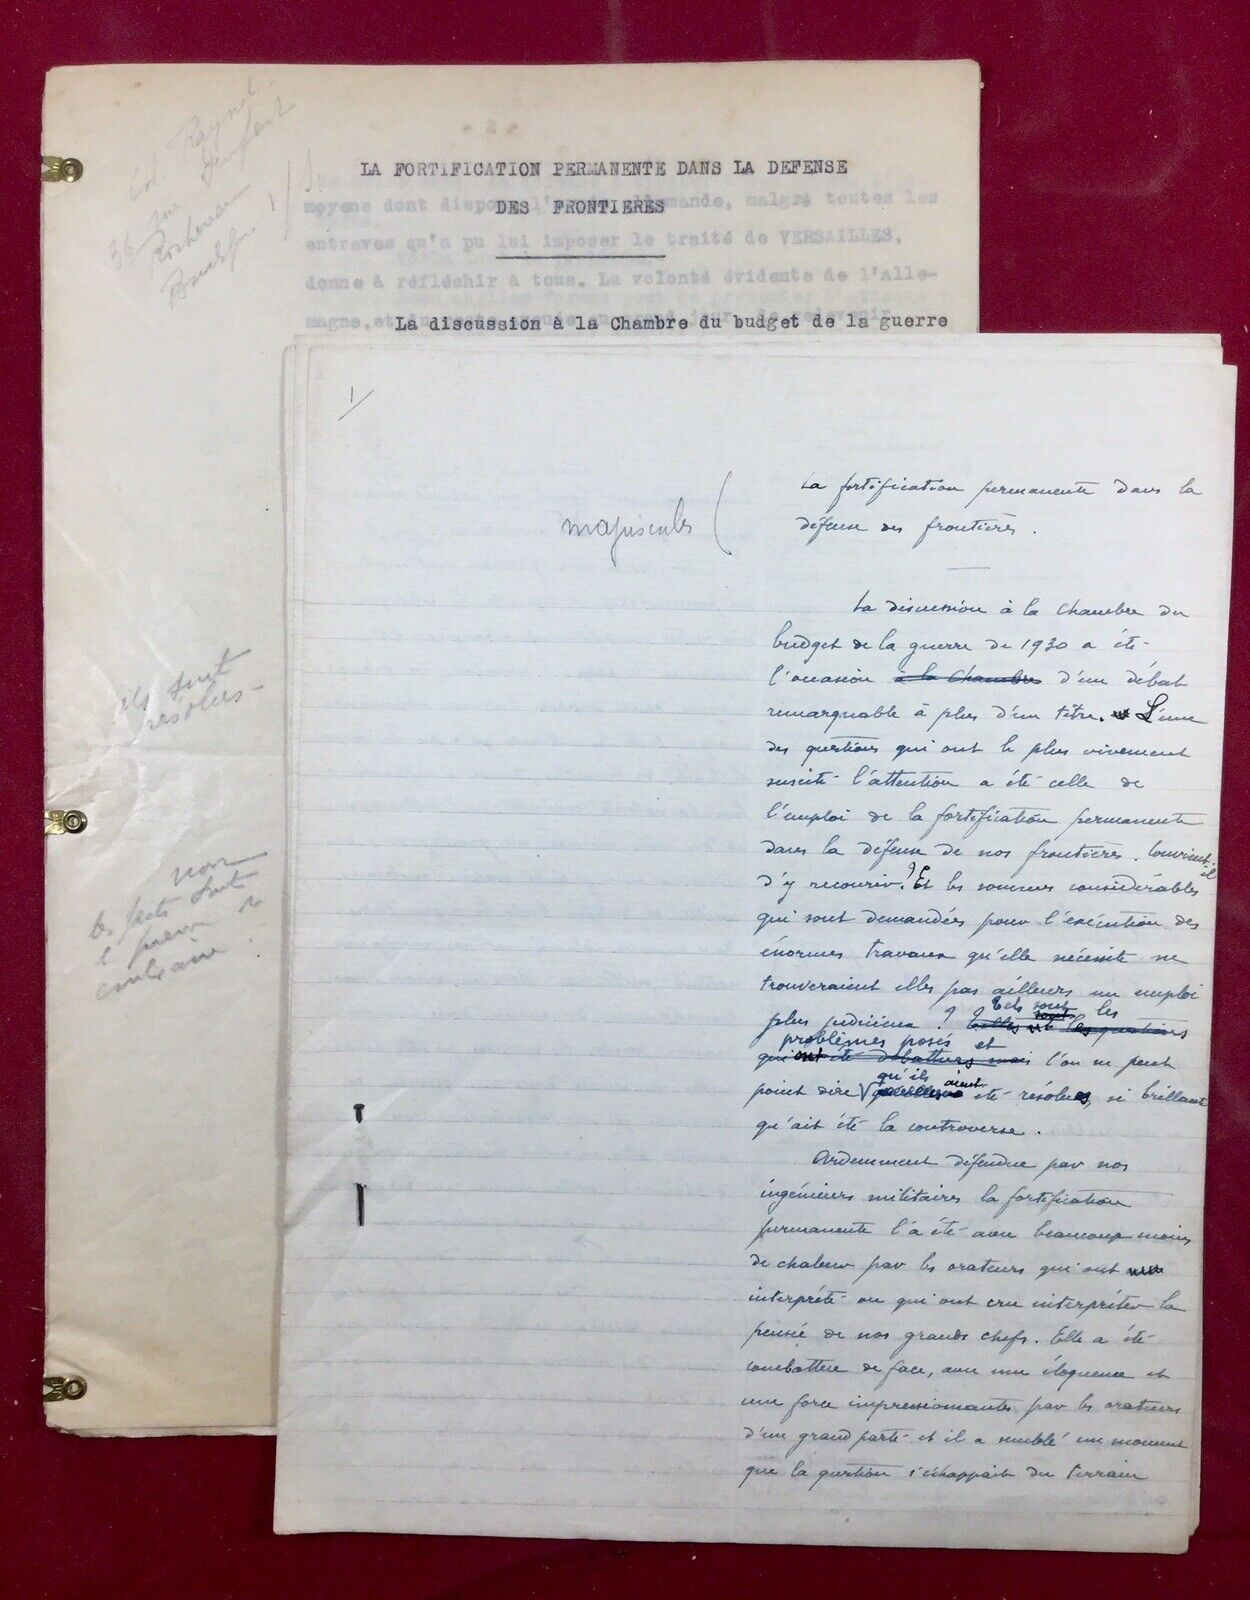 Col. Raynal
36 rue Denfert
Rochereau
1/
LA FORTIFICATION PERMANENTE DANS LA DEFENSE
DES FRONTIERES
moyens dont dispose l'armée allemande, malgré toutes les
entraves qu'a pu lui imposer le traité de VERSAILLES,
donne à réfléchir à tous. La volonté évidente de l'Alle-
magne, et
La discussion à la Chambre du budget de la guerre
ils sont
résolus
non
les faits sont
contraire
1/
majuscules (
La fortification permanente dans la
défense des frontières.
La discussion à la Chambre du
budget de la guerre de 1930 a été
l'occasion à la Chambre d'un débat
remarquable à plus d'un titre. L'une
des questions qui ont le plus vivement
suscité l'attention a été celle de
l'emploi de la fortification permanente
dans la défense de nos frontières. Convient-il
d'y recourir ? Et les sommes considérables
qui sont demandées pour l'exécution des
énormes travaux qu'elle nécessite ne
trouveraient elles pas ailleurs un emploi
plus judicieux ? Tels sont les
problèmes posés et
qui ont été débattus mais l'on ne peut
point dire qu'ils aient été résolus, si brillante
qu'ait été la controverse.
Ardemment défendue par nos
ingénieurs militaires la fortification
permanente l'a été avec beaucoup moins
de chaleur par les orateurs qui ont
interprété ou qui ont cru interpréter la
pensée de nos grands chefs. Elle a été
combattue de face, avec une éloquence et
une force impressionnantes par les orateurs
d'un grand parti et il a semblé un moment
que la question s'échappait du terrain